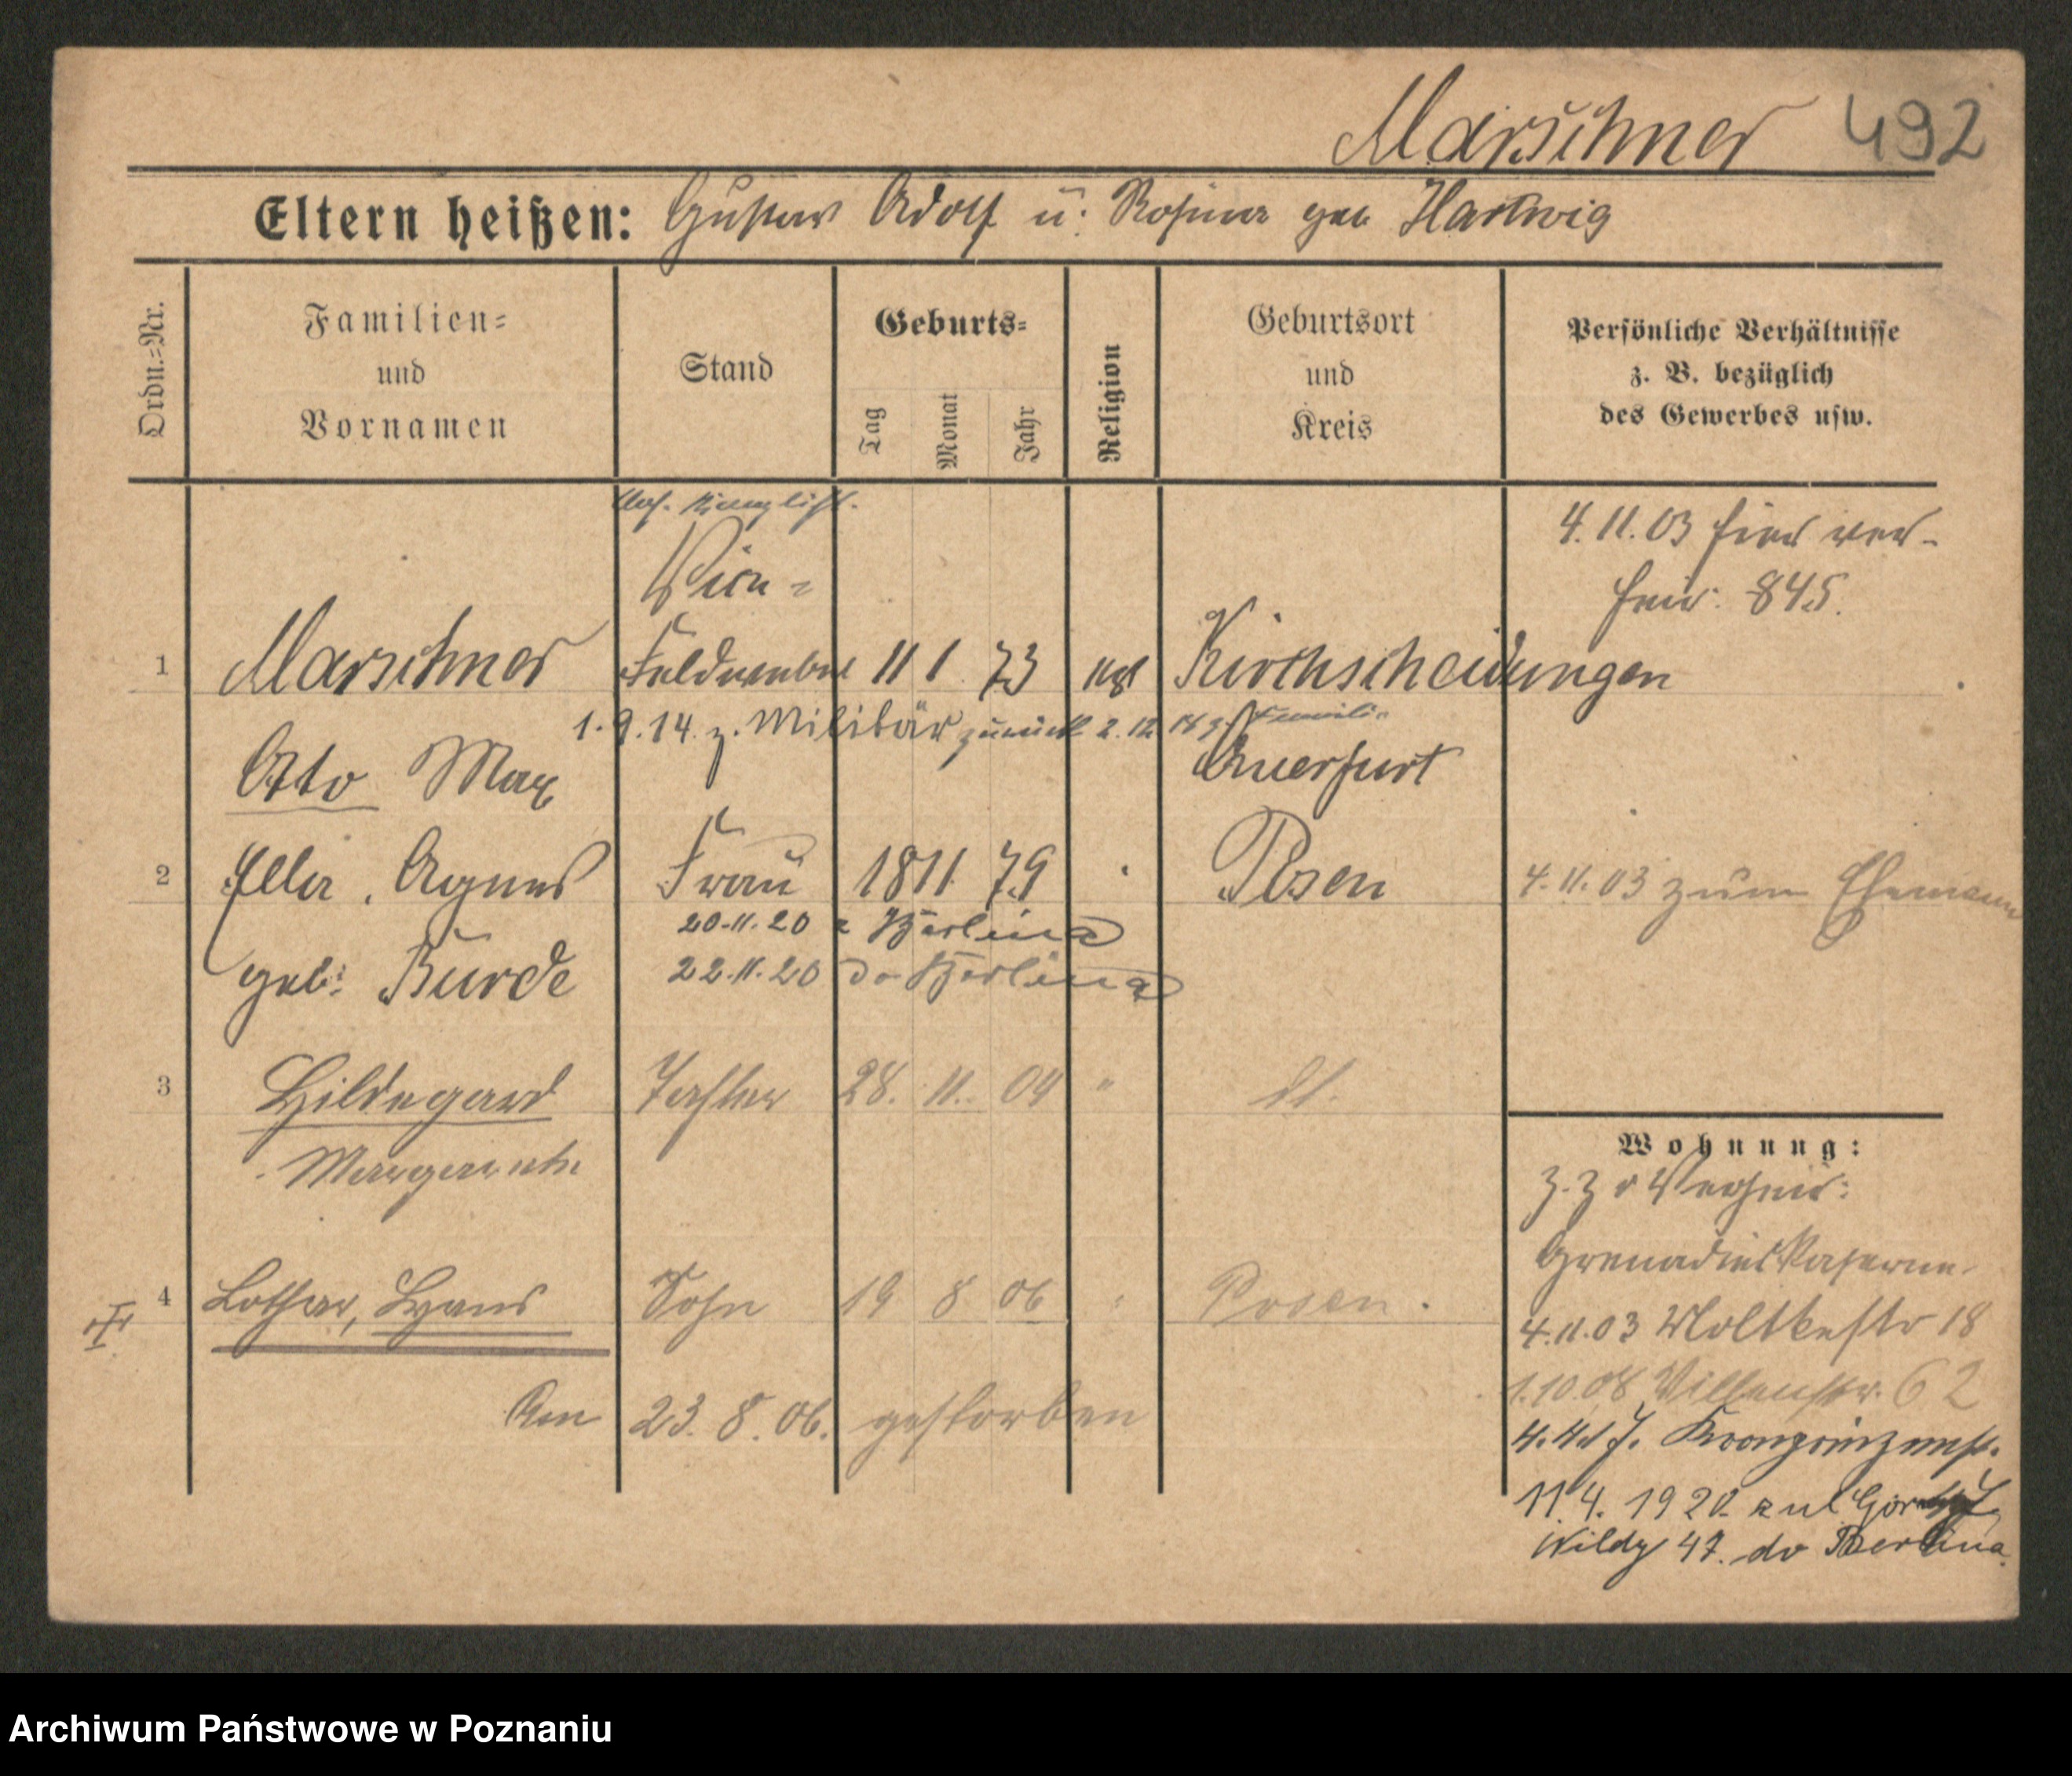 Marschner 492
Eltern heißen: Gustav Adolf u. Rosina geb Hartwig
Ordn.=Nr.
Familien=
und
Vornamen
Stand
Geburts=
Tag
Monat
Jahr
Religion
Geburtsort
und
Kreis
Persönliche Verhältnisse
z. B. bezüglich
des Gewerbes usw.
Kanzlist.
4. 11. 03 hier ver-
heir. 845.
1 Marschner 11 1 73 Kirchscheidungen
1. 9. 14. z. Militär zurück 2. 12. 18 z. Familie
Otto Max Querfurt
2 Ella, Agnes Frau 18 11 79 Posen 4. 11. 03 zum Ehemann
20. 11. 20 z Berlina
geb: Burde 22. 11. 20 do Berlina
3 Hildegard Tochter 28. 11. 04 " dt.
Margarethe
4 Lothar, Hans Sohn 19 8 06 " Posen.
Am 23. 8. 06. gestorben
Wohnung:
Z. Z
Grenadierkaserne
4. 11. 03 Moltkestr 18
1. 10. 08 Villenstr. 62
Kronprinzenstr.
11. 4. 1920. z ul Górna
Wildy 47. do Berlina.
Archiwum Państwowe w Poznaniu